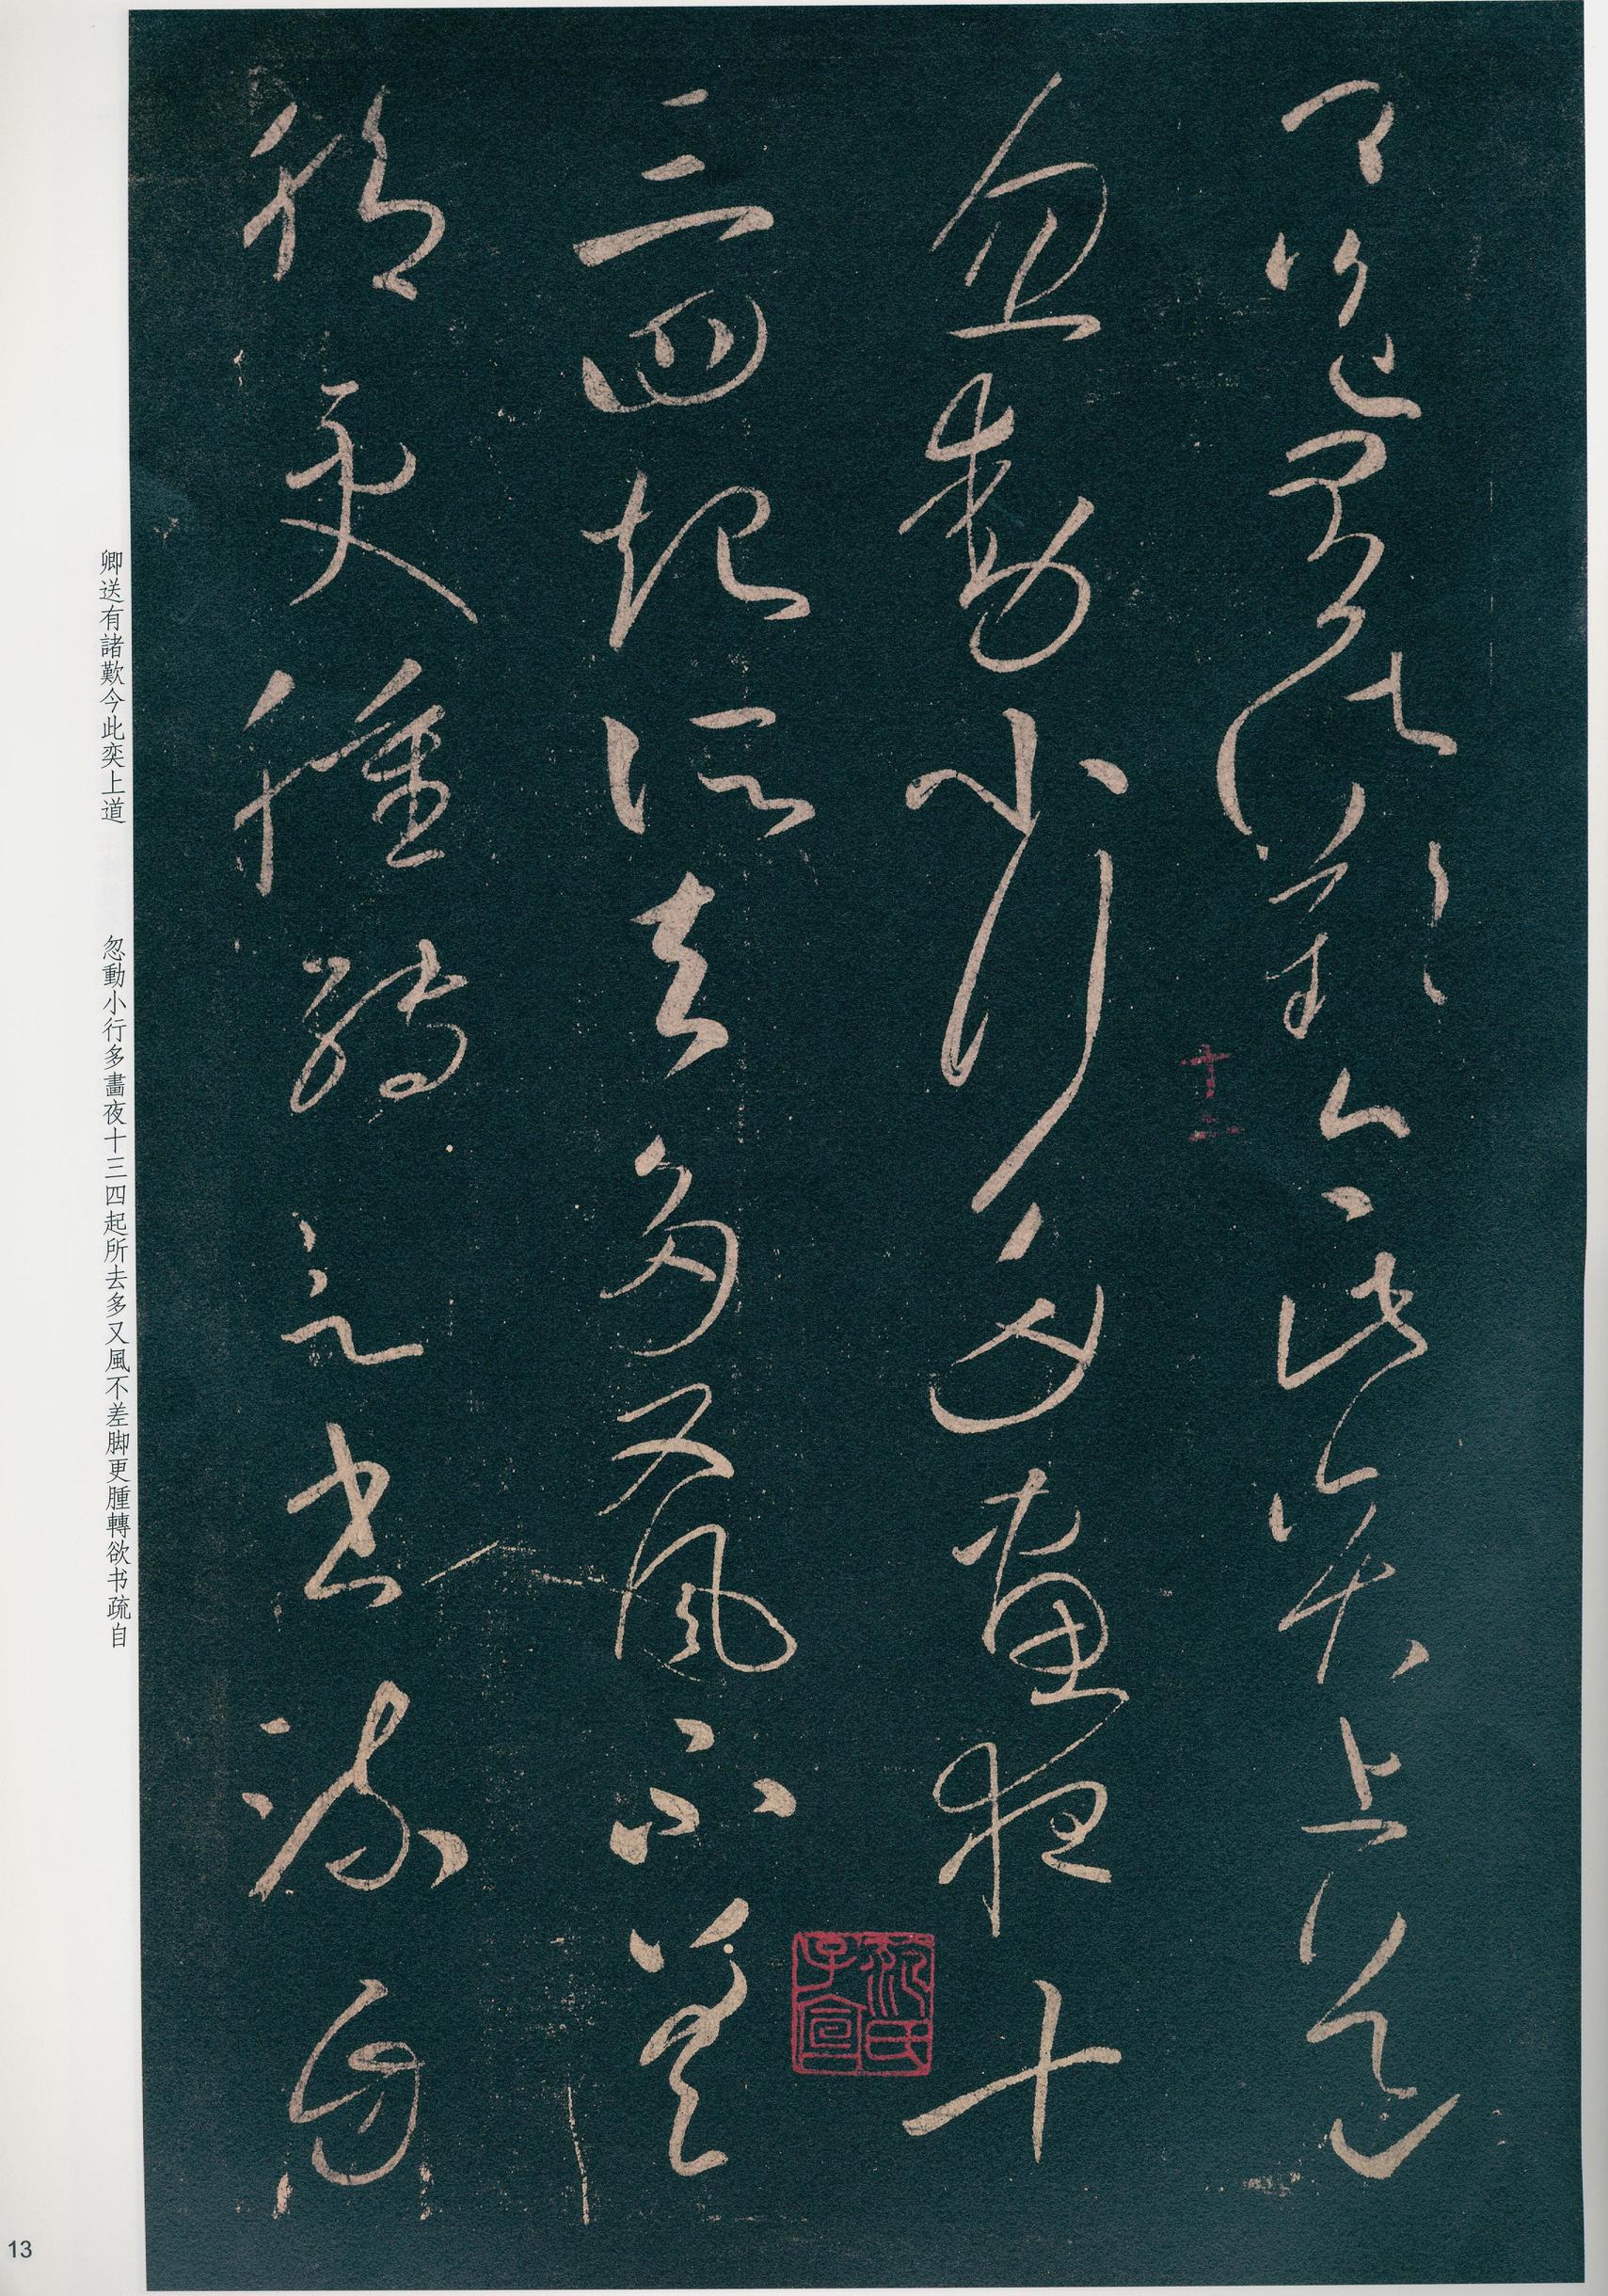 卿送有諸歎今此奕上道
十二
忽動小行多畫夜十
三四起所去多又風不差
脚更腫轉欲书疏自
卿送有諸歎今此奕上道
忽動小行多畫夜十三四起所去多又風不差脚更腫轉欲书疏自
13